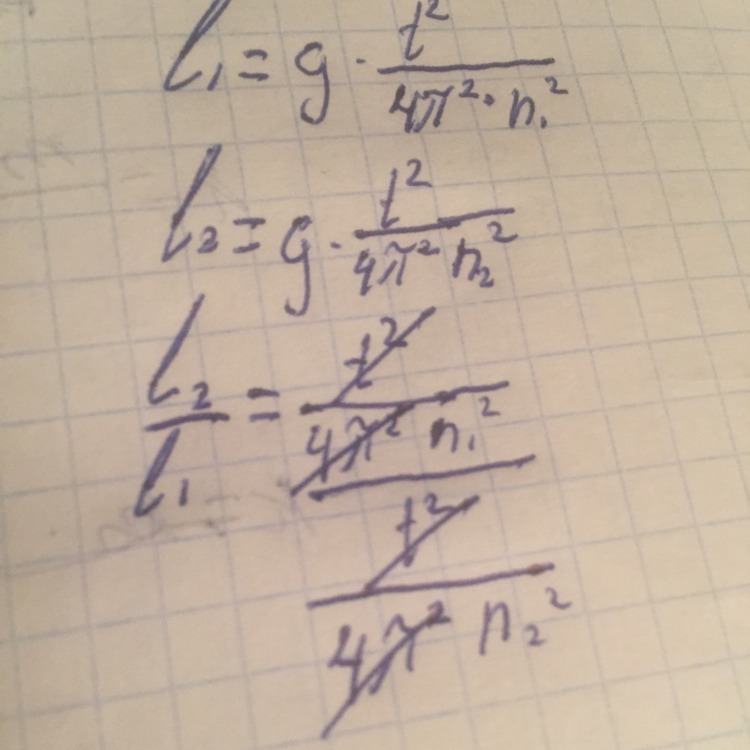 l₁ = g · t² / 4π² · n₁²
l₂ = g · t² / 4π² n₂²
l₂ / l₁ = (t² / 4π² n₁²) / (t² / 4π² n₂²)